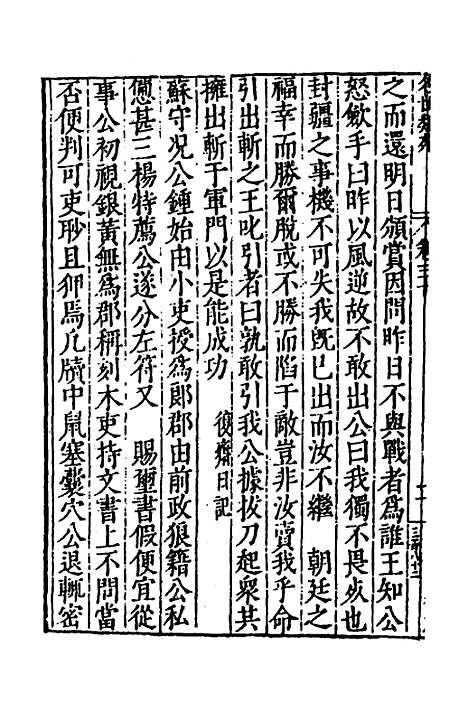 之而還明日頒賞因問昨日不與戰者爲誰王知公
怒斂手曰昨以風逆故不敢出公曰我獨不畏死也
封疆之事機不可失我旣已出而汝不繼　朝廷之
福幸而勝爾脫或不勝而陷于敵豈非汝賣我乎命
引出斬之王叱引者曰孰敢引我公據拔刀起衆共
擁出斬于軍門以是能成功　復齋日記
蘇守况公鍾始由小吏授爲郎郡由前政狼籍公私
憊甚三楊特薦公遂分左符又　賜璽書假便宜從
事公初視銀黃無爲郡稱刻木吏持文書上不問當
否便判可吏眇且狎焉几牘中鼠塞囊穴公退輒密